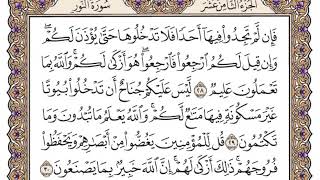 الجزء الثامن عشر
سورة النور
فَإِن لَّمْ تَجِدُوا۟ فِيهَآ أَحَدًا فَلَا تَدْخُلُوهَا حَتَّىٰ يُؤْذَنَ لَكُمْ ۖ
وَإِن قِيلَ لَكُمُ ٱرْجِعُوا۟ فَٱرْجِعُوا۟ ۖ هُوَ أَزْكَىٰ لَكُمْ ۚ وَٱللَّهُ بِمَا
تَعْمَلُونَ عَلِيمٌ ٢٨ لَّيْسَ عَلَيْكُمْ جُنَاحٌ أَن تَدْخُلُوا۟ بُيُوتًا
غَيْرَ مَسْكُونَةٍ فِيهَا مَتَٰعٌ لَّكُمْ ۚ وَٱللَّهُ يَعْلَمُ مَا تُبْدُونَ وَمَا
تَكْتُمُونَ ٢٩ قُل لِّلْمُؤْمِنِينَ يَغُضُّوا۟ مِنْ أَبْصَٰرِهِمْ وَيَحْفَظُوا۟
فُرُوجَهُمْ ۚ ذَٰلِكَ أَزْكَىٰ لَهُمْ ۗ إِنَّ ٱللَّهَ خَبِيرٌۢ بِمَا يَصْنَعُونَ ٣٠